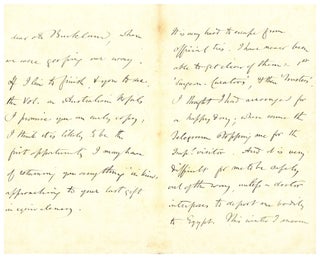 dear Mr Buckland, when
we were going our way.
If I live to finish & you to see
the Vol. on Australian
I promise you an early copy;
I think it is likely to be the
first opportunity I may have
of returning you any thing in
approaching to your last gift
in equivalency.
It is very hard to escape from
official ties. I have never been
able to get clear of them:
'Curators', & then 'Trustees'.
I thought I had arranged for
a happy day; when came the
Telegram stopping me for the
visitor. And it is very
difficult for me to be safely
out of the way, unless a doctor
interposes to deport me bodily
to Egypt. This winter I